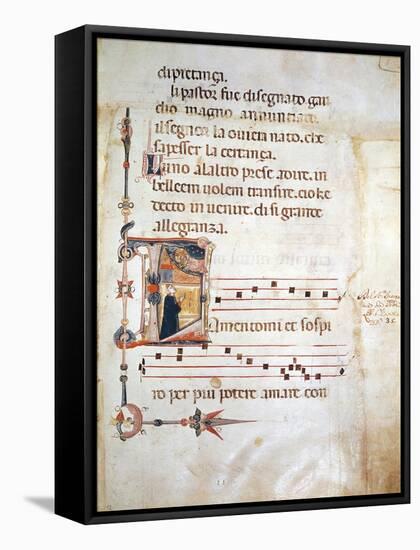 di pretança.
li pastor fue disegnato gau
dio magno annunciato
il segnor la ouie e nato. che
sapesser la certança.
Luno alaltro prese adire. in
belleem uolem transire. cioke
decto inuenire. di si grante
allegrança.
Lamentomi et sospi
ro per piu potere amare con